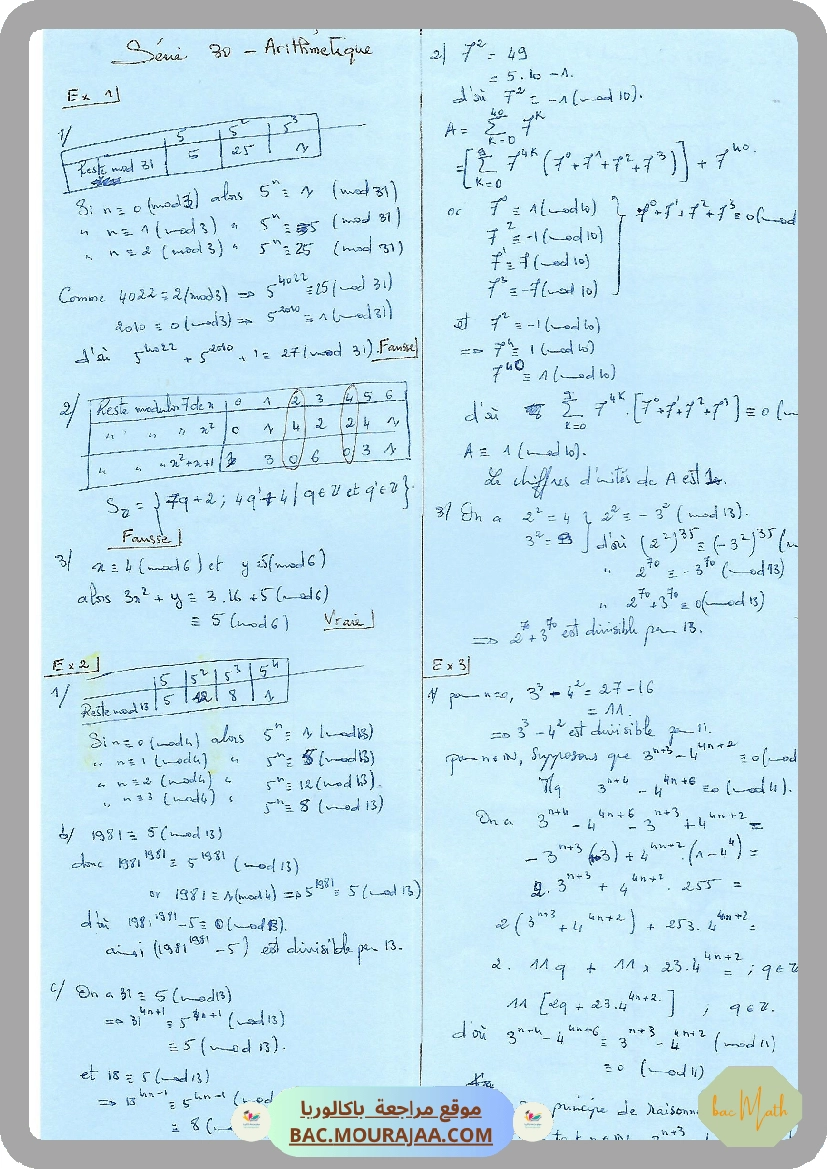 Série 30 - Arithmétique
Ex 1
1/
5 5² 5³
Reste mod 31 5 25 1
Si n ≡ 0 (mod 3) alors 5ⁿ ≡ 1 (mod 31)
" n ≡ 1 (mod 3) " 5ⁿ ≡ 5 (mod 31)
" n ≡ 2 (mod 3) " 5ⁿ ≡ 25 (mod 31)
Comme 4022 ≡ 2 (mod 3) ⇒ 5⁴⁰²² ≡ 25 (mod 31)
2010 ≡ 0 (mod 3) ⇒ 5²⁰¹⁰ ≡ 1 (mod 31)
d'où 5⁴⁰²² + 5²⁰¹⁰ + 1 ≡ 27 (mod 31). Fausse
2/ Reste modulo 7 de x 0 1 2 3 4 5 6
" " " x² 0 1 4 2 2 4 1
" " " x²+x+1 1 3 0 6 0 3 1
S = { 7q+2 ; 4q'+4 / q∈ℤ et q'∈ℤ }.
Fausse
3/ x ≡ 4 (mod 6) et y ≡ 5 (mod 6)
alors 3x² + y ≡ 3.16 + 5 (mod 6)
≡ 5 (mod 6) Vraie
Ex 2
1/
5 5² 5³ 5⁴
Reste mod 13 5 12 8 1
Si n ≡ 0 (mod 4) alors 5ⁿ ≡ 1 (mod 13)
" n ≡ 1 (mod 4) " 5ⁿ ≡ 5 (mod 13)
" n ≡ 2 (mod 4) " 5ⁿ ≡ 12 (mod 13).
" n ≡ 3 (mod 4) " 5ⁿ ≡ 8 (mod 13)
b/ 1981 ≡ 5 (mod 13)
donc 1981¹⁹⁸¹ ≡ 5¹⁹⁸¹ (mod 13)
or 1981 ≡ 1 (mod 4) ⇒ 5¹⁹⁸¹ ≡ 5 (mod 13)
d'où 1981¹⁹⁸¹ - 5 ≡ 0 (mod 13).
ainsi (1981¹⁹⁸¹ - 5) est divisible par 13.
c/ On a 31 ≡ 5 (mod 13)
⇒ 31⁴ⁿ⁺¹ ≡ 5⁴ⁿ⁺¹ (mod 13)
≡ 5 (mod 13).
et 18 ≡ 5 (mod 13)
⇒ 18⁴ⁿ⁻¹ ≡ 5⁴ⁿ⁻¹ (mod
≡ 8 (m
2/ 7² = 49
= 5.10 - 1.
d'où 7² ≡ -1 (mod 10).
A = Σ(k=0→40) 7ᵏ
= [Σ(k=0→9) 7⁴ᵏ (7⁰+7¹+7²+7³)] + 7⁴⁰.
or 7⁰ ≡ 1 (mod 10) } 7⁰+7¹+7²+7³ ≡ 0 (mod
7² ≡ -1 (mod 10)
7¹ ≡ 7 (mod 10)
7³ ≡ -7 (mod 10)
et 7² ≡ -1 (mod 10)
⇒ 7⁴ ≡ 1 (mod 10)
7⁴⁰ ≡ 1 (mod 10)
d'où Σ(k=0→9) 7⁴ᵏ.[7⁰+7¹+7²+7³] ≡ 0 (m
A ≡ 1 (mod 10).
Le chiffres d'unités de A est 1.
3/ On a 2² = 4 } 2² ≡ -3² (mod 13).
3² = 9 d'où (2²)³⁵ ≡ (-3²)³⁵ (m
" 2⁷⁰ ≡ -3⁷⁰ (mod 13)
" 2⁷⁰+3⁷⁰ ≡ 0 (mod 13)
⇒ 2⁷⁰+3⁷⁰ est divisible par 13.
Ex 3
1/ pour n=0, 3³ - 4² = 27 - 16
= 11.
⇒ 3³ - 4² est divisible par 11.
pour n∈ℕ, supposons que 3ⁿ⁺³ - 4⁴ⁿ⁺² ≡ 0 (mod
Mq 3ⁿ⁺⁴ - 4⁴ⁿ⁺⁶ ≡ 0 (mod 11).
On a 3ⁿ⁺⁴ - 4⁴ⁿ⁺⁶ - 3ⁿ⁺³ + 4⁴ⁿ⁺² =
- 3ⁿ⁺³ (1-3) + 4⁴ⁿ⁺².(1-4⁴) =
2.3ⁿ⁺³ + 4⁴ⁿ⁺².255 =
2(3ⁿ⁺³ + 4⁴ⁿ⁺²) + 253.4⁴ⁿ⁺² =
2. 11q + 11 × 23.4⁴ⁿ⁺² = ; q∈ℤ
11 [2q + 23.4⁴ⁿ⁺²] ; q∈ℤ.
d'où 3ⁿ⁺⁴ - 4⁴ⁿ⁺⁶ ≡ 3ⁿ⁺³ - 4⁴ⁿ⁺² (mod 11)
≡ 0 (mod 11)
principe de raisonn
3ⁿ⁺³
bac Math
موقع مراجعة باكالوريا
BAC.MOURAJAA.COM